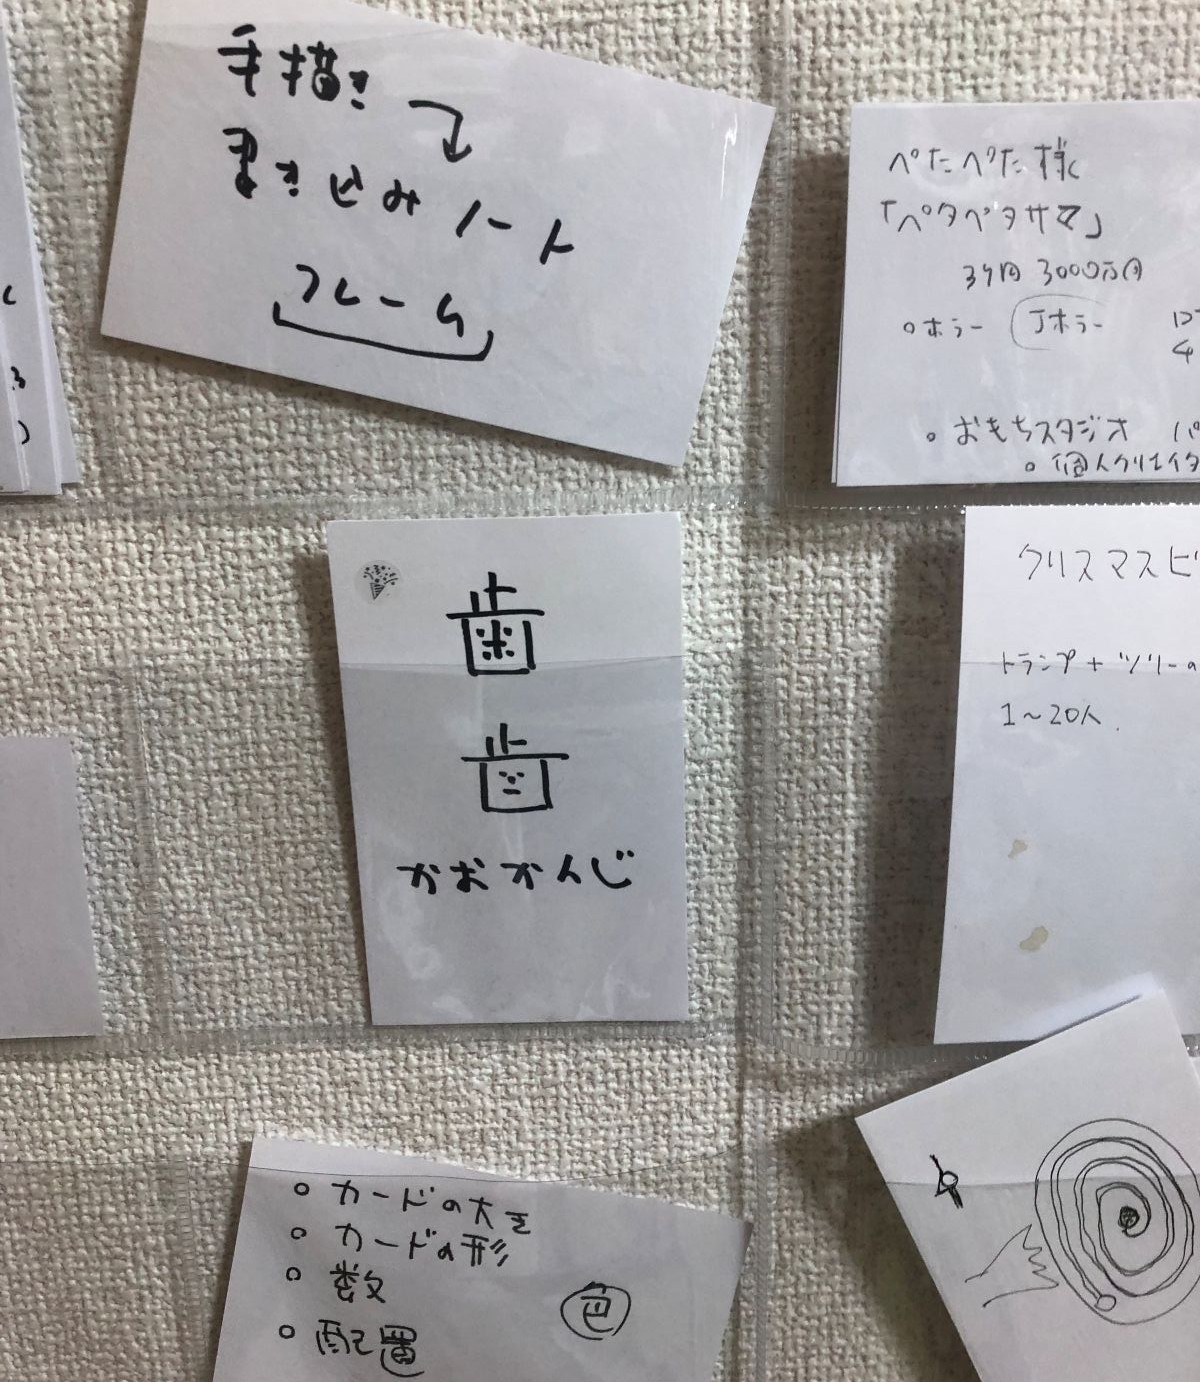 手描き
書き込みノート
フレーム
ぺたぺた様
「ペタペタサマ」
3000万円
ホラー Jホラー
おもちスタジオ
個人クリエイタ
歯
歯
かおかんじ
クリスマスビ
トランプ+ツリーの
1〜20人
カードの大き
カードの形
数
配置
色